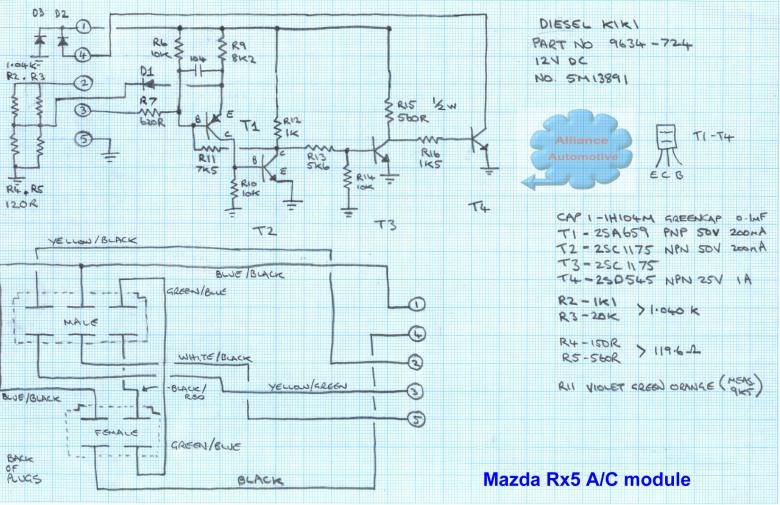 D3 D2
1
4
2
3
5
1.04K
R2. R3
D1
R7
620R
R6
10K
104
R9
8K2
B
E
C
T1
R11
7K5
R10
10K
R12
1K
C
B
E
T2
R13
5K6
R14
10K
T3
R15
560R
1/2 W
R16
1K5
T4
R4. R5
120R
DIESEL KIKI
PART NO 9634-724
12V DC
NO. 5M13891
Alliance
Automotive
T1-T4
E C B
CAP 1-1H104M GREENCAP 0.1MF
T1 - 2SA659 PNP 50V 200mA
T2 - 2SC1175 NPN 50V 200mA
T3 - 2SC1175
T4 - 2SD545 NPN 25V 1A
R2 - 1K1
R3 - 20K > 1.040 K
R4 - 150R
R5 - 560R > 119.6 Ω
R11 VIOLET GREEN ORANGE (MEAS 9K5)
YELLOW/BLACK
BLUE/BLACK
GREEN/BLUE
MALE
WHITE/BLACK
BLACK/
RED
YELLOW/GREEN
BLUE/BLACK
FEMALE
GREEN/BLUE
BLACK
BACK
OF
PLUGS
1
4
2
3
5
Mazda Rx5 A/C module